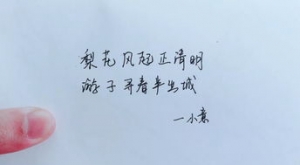 梨花风起正清明
游子寻春半出城
一小意